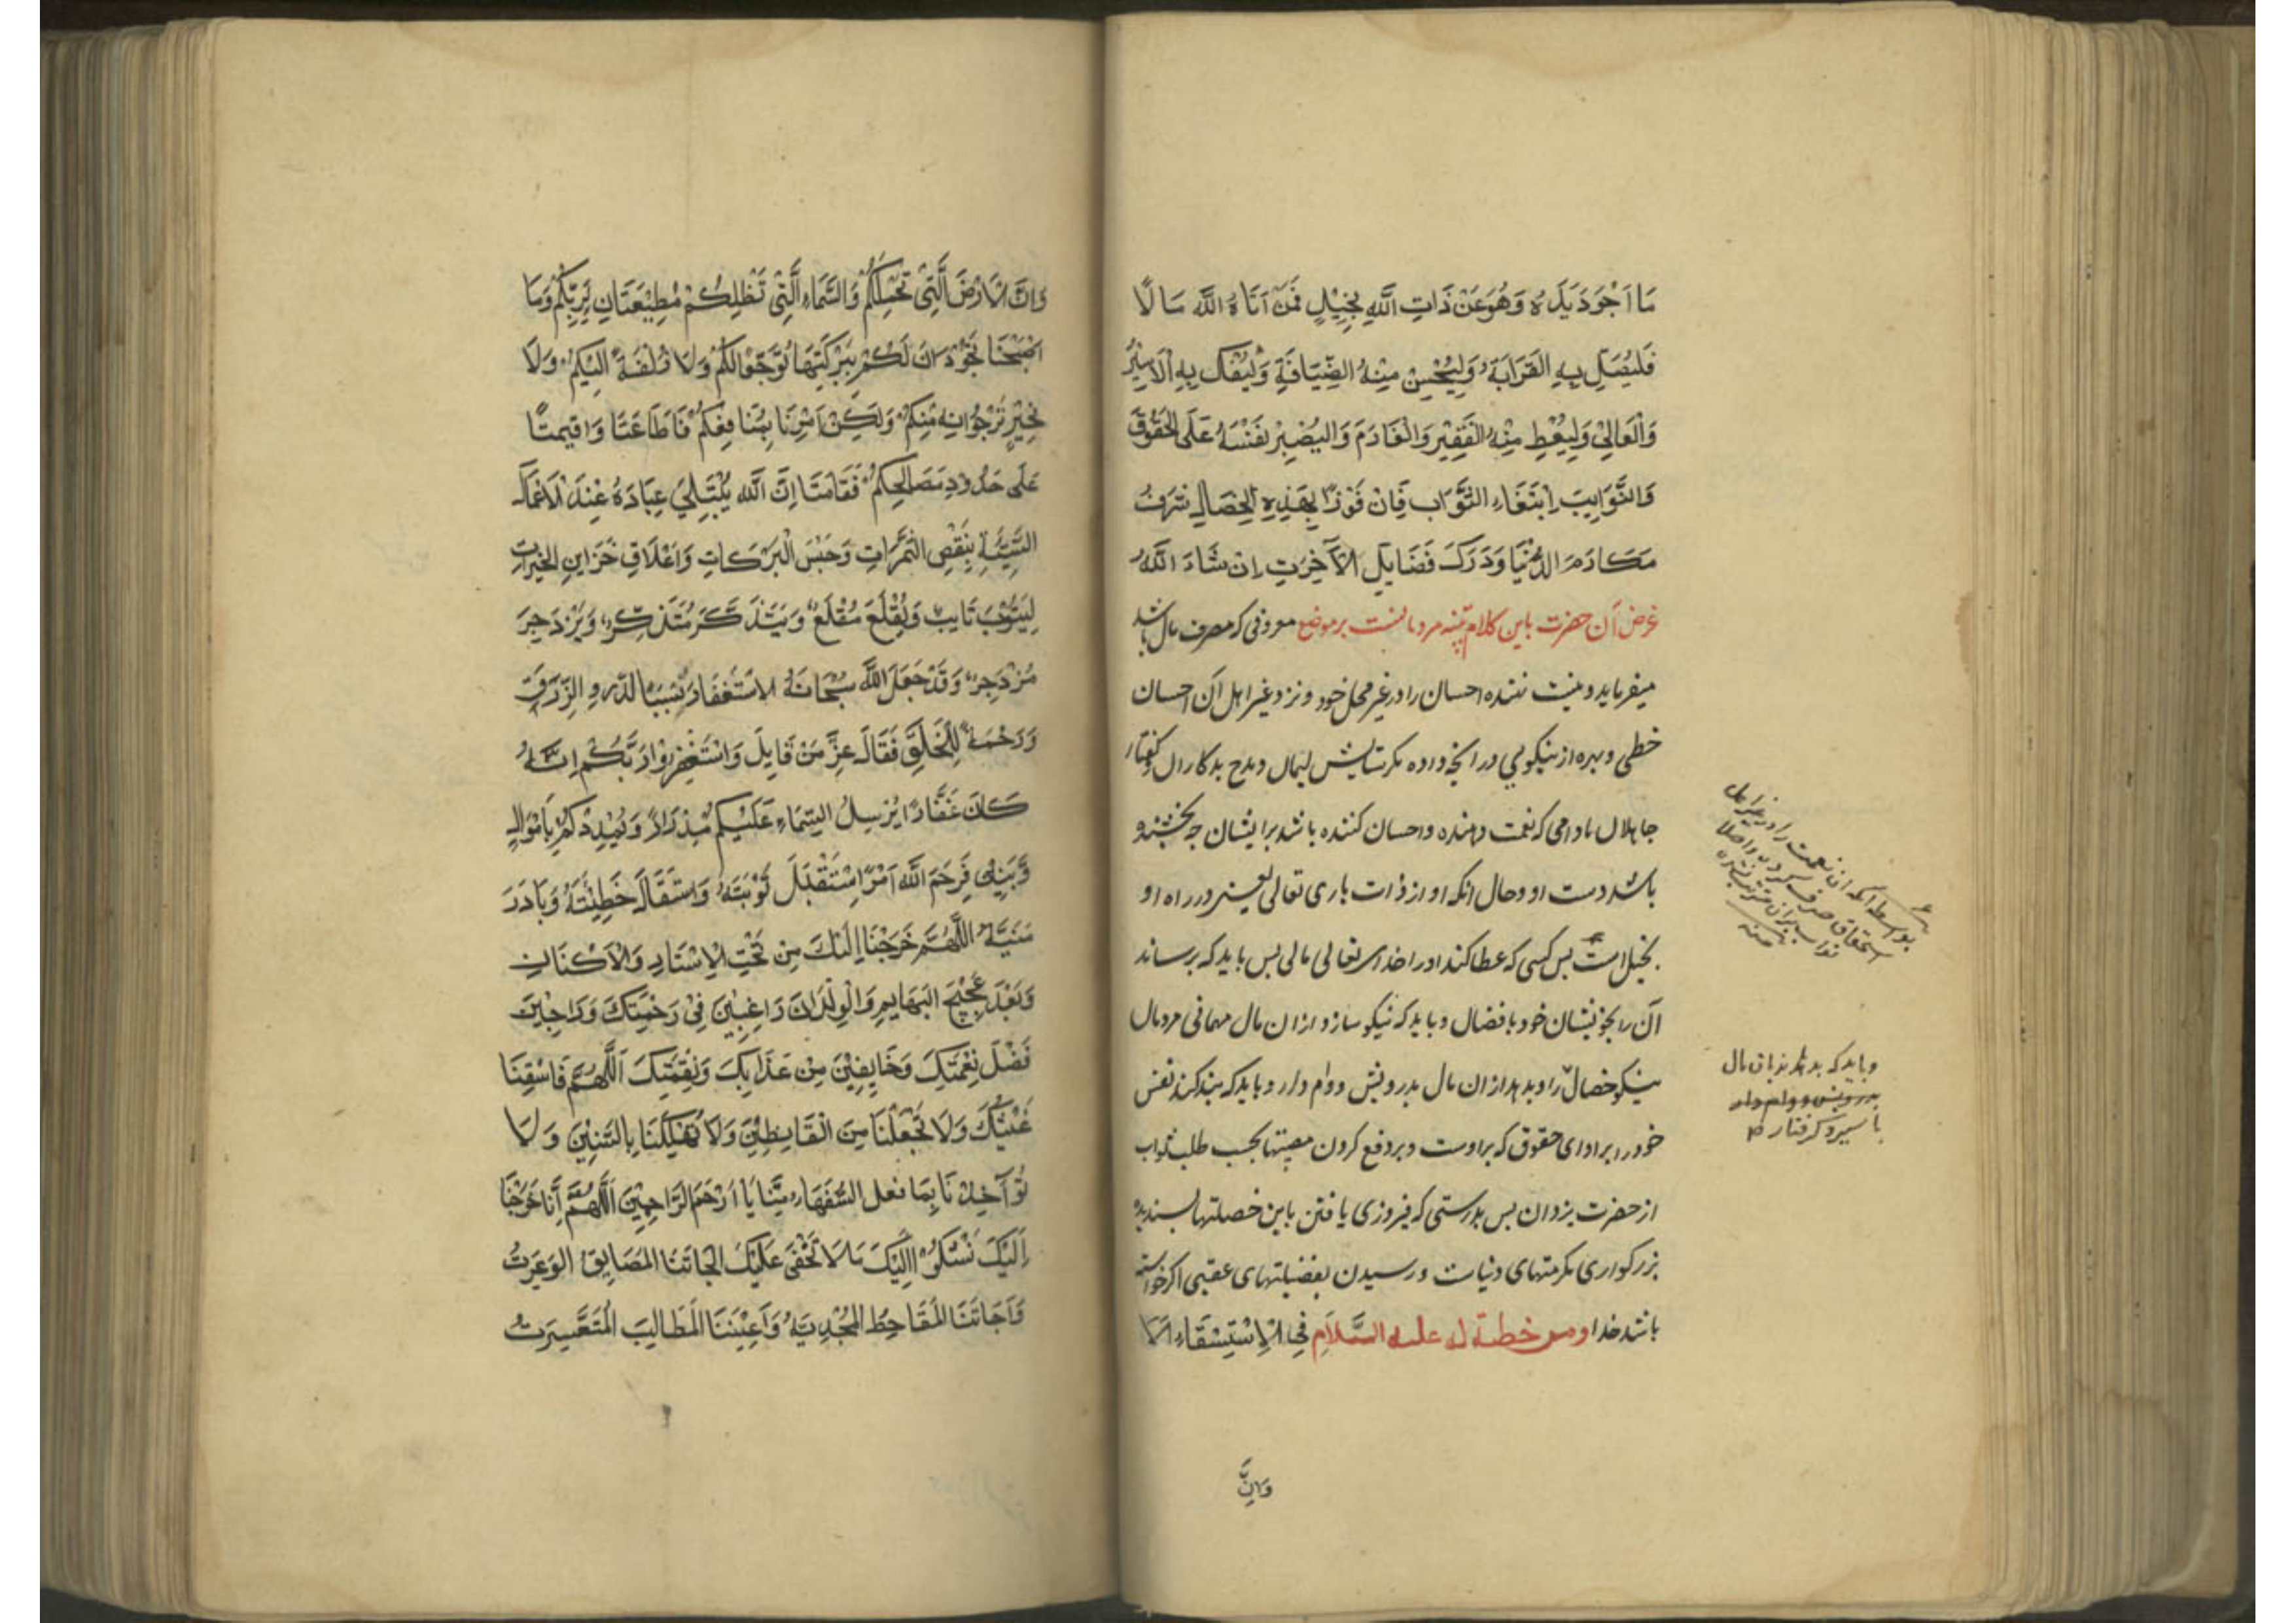 مَا اَجْوَدَ یَدَهُ وَهُوَ عَنْ ذَاتِ اللَّهِ بَخِیْلٍ فَمَنْ آتَاهُ اللَّهُ مَالًا
فَلْیَصِلْ بِهِ القَرَابَةَ وَلْیُحْسِنْ مِنْهُ الضِّیَافَةَ وَلْیَفُکَّ بِهِ الْاَسِیْرَ
وَالْعَانِیَ وَلْیُعْطِ مِنْهُ الْفَقِیْرَ وَالْغَارِمَ وَالْیَصْبِرْ نَفْسَهُ عَلَی الْحُقُوْقِ
وَالنَّوَایِبَ اِبْتِغَاءِ الثَّوَابِ فَاِنَّ فَوْزًا بِهَذِهِ الْخِصَالِ شَرَفُ
مَکَارِمِ الدُّنْیَا وَدَرَکَ فَضَایِلِ الْآخِرَتِ اِنْ شَاءَ اللَّهُ
غرض آن حضرت باین کلام تنبیه مردمانست بر موضع معروفی که مصرف مال باشد
میفرماید و نیست نهنده احسان را در غیر محل خود و نزد غیر اهل آن احسان
حظی و بهره از نیکویی در آنچه داده مکر ستایش لیمان و مدح بدکاران و کفتار
جاهلان مادامی که نعمت دهنده و احسان کننده باشد برایشان چه بخشنده
باشد دست او و حال آنکه او از ذات باری تعالی یعنی در راه او
بخیل است پس کسی که عطا کند او را خدای تعالی مالی پس باید که برساند
آن را بخویشان خود بافضال و باید که نیکو سازد از آن مال مهمانی مردمان
نیکو خصال را و بدهد از ان مال بدرویش و وام دار و باید که بند کند نفس
خود را بر ادای حقوق که بر اوست و بر دفع کردن مصیبتها بجهت طلب ثواب
از حضرت یزدان پس بدرستی که فیروزی یافتن باین خصلتها پسندیده
بزرکواری مکرمتهای دنیاست و رسیدن بفضیلتهای عقبی اکر خواسته
باشد خدا ومن خطبة له علیه السَّلَامِ فِی الْاِسْتِسْقَاءِ اَلَا
وَاِنَّ
بواسطه آنکه ان نعمت را در غیر اهل
استحقاق صرف کرده و اصلا
منه
و باید که بدهد بان مال
بدرویش و وام دار
باسیر و کرفتار
وَاِنَّ الْاَرْضَ الَّتِیْ تَحْمِلُکُمْ وَالسَّمَاءِ الَّتِیْ تُظِلُّکُمْ مُطِیْعَتَانِ لِرَبِّکُمْ وَمَا
اَصْبَحْتَا تَجُوْدَانِ لَکُمْ بِبَرَکَتِهَا تَوَجُّعًا لَکُمْ وَلَا زُلْفَةً اِلَیْکُمْ وَلَا
لِخَیْرٍ تَرْجُوَانِهِ مِنْکُمْ وَلَکِنْ اُمِرَتَا بِمَنَافِعِکُمْ فَاَطَاعَتَا وَاُقِیْمَتَا
عَلَی حُدُوْدِ مَصَالِحِکُمْ فَقَامَتَا اِنَّ اللَّهَ یَبْتَلِیْ عِبَادَهُ عِنْدَ الْاَعْمَالِ
السَّیِّئَةِ بِنَقْصِ الثَّمَرَاتِ وَحَبْسِ الْبَرَکَاتِ وَاِغْلَاقِ خَزَاینِ الْخَیْرَاتِ
لِیَتُوْبَ تَایِبٌ وَیُقْلِعَ مُقْلِعٌ وَیَتَذَکَّرَ مُتَذَکِّرٌ وَیَزْدَجِرَ
مُزْدَجِرٌ وَقَدْ جَعَلَ اللَّهُ سُبْحَانَهُ الاسْتِغْفَارَ سَبَبًا لِدُرُوِ الرِّزْقِ
وَرَحْمَةً لِلْخَلْقِ فَقَالَ عَزَّ مَنْ قَایِلَ وَاسْتَغْفِرُوْا رَبَّکُمْ اِنَّهُ
کَانَ غَفَّارًا یُرْسِلُ السَّمَاءِ عَلَیْکُمْ مِدْرَارًا وَیُمْدِدْکُمْ بِاَمْوَالٍ
وَّبَنِیْنَ فَرَحِمَ اللَّهُ امْرَءً اسْتَقْبَلَ تَوْبَتَهُ وَاسْتَقَالَ خَطِیْئَتَهُ وَبَادَرَ
مَنِیَّةً اللَّهُمَّ خَرَجْنَا اِلَیْکَ مِنْ تَحْتِ الْاِسْتَارِ وَالْاَکْنَانِ
وَبَعْدَ عَجِیْجِ البَهَایِمِ وَالْوِلْدَانِ رَاغِبِیْنَ فِیْ رَحْمَتِکَ وَرَاجِیْنَ
فَضْلَ نِعْمَتِکَ وَخَایِفِیْنَ مِنْ عَذَابِکَ وَنِقْمَتِکَ اَللَّهُمَّ فَاسْقِنَا
غَیْثَکَ وَلَا تَجْعَلْنَا مِنَ الْقَانِطِیْنَ وَلَا تُهْلِکْنَا بِالسِّنِیْنَ وَلَا
تُؤَآخِذْنَا بِمَا فعل السُّفَهَاءِ مِنَّا یَا اَرْحَمَ الرَّاحِمِیْنَ اَللَّهُمَّ اِنَّا خَرَجْنَا
اِلَیْکَ نَشْکُوْا اِلَیْکَ مَا لَا تَخْفَی عَلَیْکَ الجَاتَنَا المَضَایِقُ الوَعِرَتُ
وَاَجَائَتْنَا الْمَقَاحِطُ الْمُجْدِبَةُ وَاَعْیَتْنَا الْمَطَالِبَ الْمُتَعَسِّرَتُ